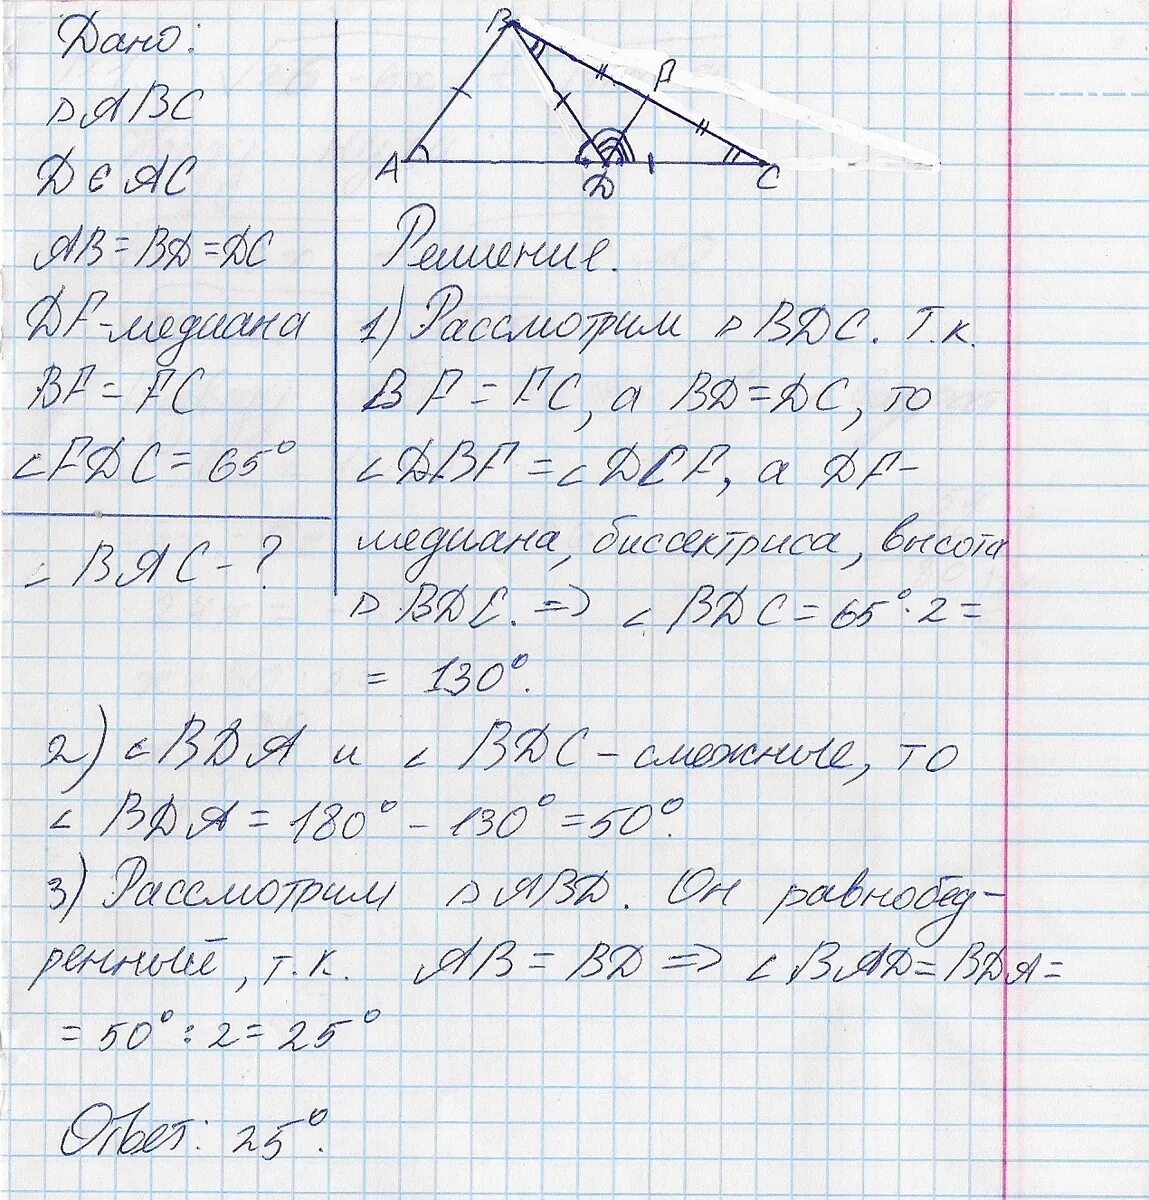 Дано:
▷ABC
D ∈ AC
AB = BD = DC
DF-медиана
BF = FC
∠FDC = 65°
∠BAC - ?
B
F
A
D
C
Решение.
1) Рассмотрим ▷ BDC. Т.к.
BF = FC, а BD = DC, то
∠DBF = ∠DCF, а DF-
медиана, биссектриса, высота
▷ BDC. => ∠ BDC = 65° · 2 =
= 130°.
2) ∠BDA и ∠ BDC - смежные, то
∠ BDA = 180° - 130° = 50°.
3) Рассмотрим ▷ABD. Он равнобед-
ренный, т.к. AB = BD => ∠ BAD = BDA =
= 50° : 2 = 25°
Ответ: 25°.